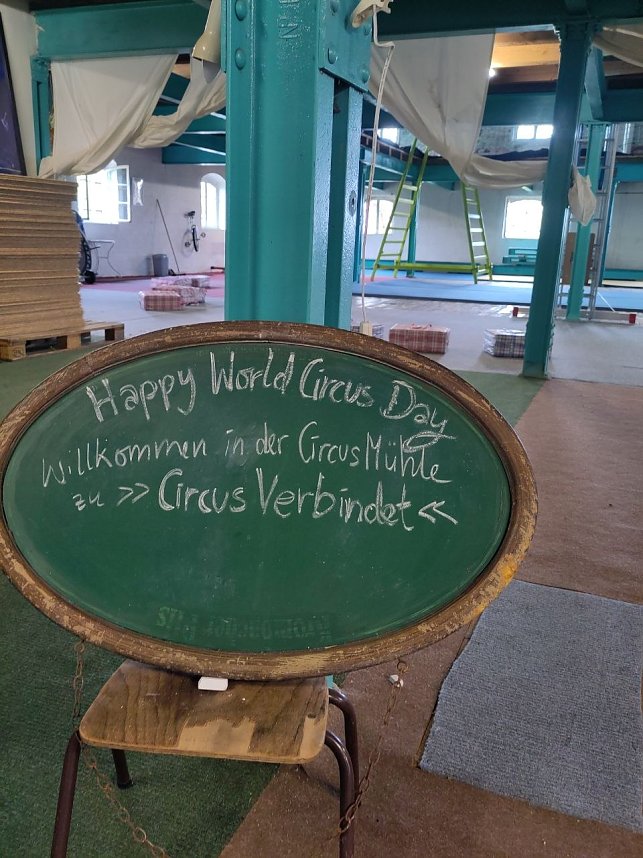 Happy World Circus Day
Willkommen in der Circus Mühle
zu >> Circus Verbindet <<